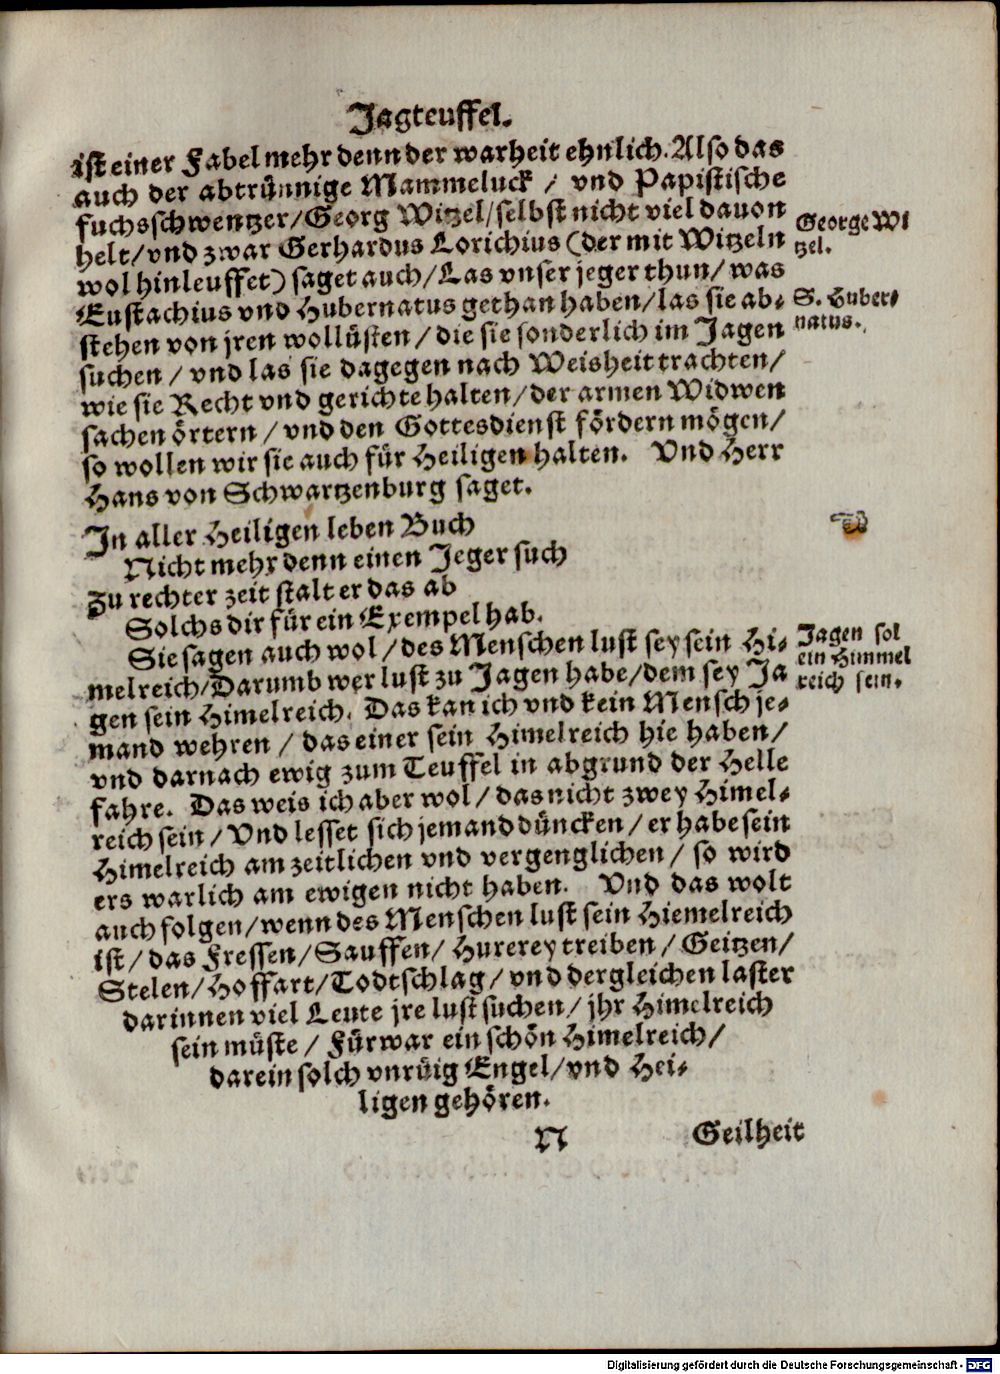 Jagteuffel.
ist einer Fabel mehr denn der warheit ehnlich. Also das
auch der abtrünnige Mammeluck / vnd Papistische
fuchsschwentzer/Georg Witzel/selbst nicht viel dauon
helt/vnd zwar Gerhardus Lorichius (der mit Witzeln
wol hinleuffet) saget auch/Las vnser jeger thun/was
Eustachius vnd Hubernatus gethan haben/las sie ab-
stehen von jren wollüsten/die sie sonderlich im Jagen
suchen / vnd las sie dagegen nach Weisheit trachten/
wie sie Recht vnd gerichte halten/der armen Widwen
sachen örtern / vnd den Gottesdienst fördern mögen/
so wollen wir sie auch für Heiligen halten. Vnd Herr
Hans von Schwartzenburg saget.
George Wi
tzel.
S. Huber-
natus.
In aller Heiligen leben Buch
Nicht mehr denn einen Jeger such
Zu rechter zeit stalt er das ab
Solchs dir für ein Exempel hab.
Sie sagen auch wol/des Menschen lust sey sein Hi-
melreich/Darumb wer lust zu Jagen habe/dem sey Ja
gen sein Himelreich. Das kan ich vnd kein Mensch je-
mand wehren / das einer sein Himelreich hie haben/
vnd darnach ewig zum Teuffel in abgrund der Helle
fahre. Das weis ich aber wol/das nicht zwey Himel-
reich sein/Vnd lesset sich jemand düncken/er habe sein
Himelreich am zeitlichen vnd vergenglichen/ so wird
ers warlich am ewigen nicht haben. Vnd das wolt
auch folgen/wenn des Menschen lust sein Hiemelreich
ist/das Fressen/Sauffen/Hurerey treiben/Geitzen/
Stelen/Hoffart/Todtschlag/vnd dergleichen laster
darinnen viel Leute jre lust suchen/jhr Himelreich
sein müste/Fürwar ein schön Himelreich/
darein solch vnrüig Engel/vnd Hei-
ligen gehören.
Jagen sol
ein Himmel
reich sein.
N Geilheit
Digitalisierung gefördert durch die Deutsche Forschungsgemeinschaft - DFG